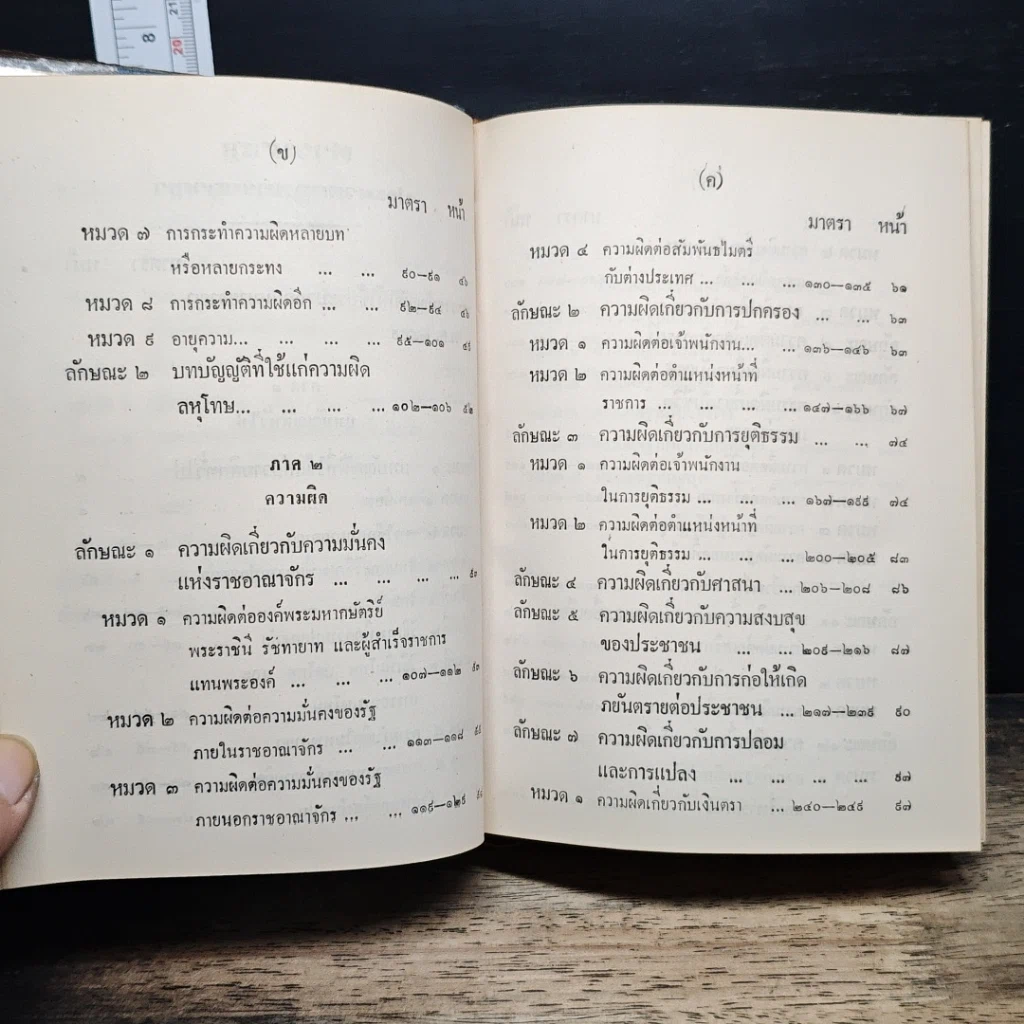 8
21
20
(ข)
มาตรา หน้า
หมวด ๗ การกระทำความผิดหลายบท
หรือหลายกระทง ... ... ๙๐—๙๑
หมวด ๘ การกระทำความผิดอีก ... ... ๙๒—๙๔
หมวด ๙ อายุความ... ... ... ... ๙๕—๑๐๑
ลักษณะ ๒ บทบัญญัติที่ใช้แก่ความผิด
ลหุโทษ... ... ... ... ๑๐๒—๑๐๖
ภาค ๒
ความผิด
ลักษณะ ๑ ความผิดเกี่ยวกับความมั่นคง
แห่งราชอาณาจักร ... ... ... ...
หมวด ๑ ความผิดต่อองค์พระมหากษัตริย์
พระราชินี รัชทายาท และผู้สำเร็จราชการ
แทนพระองค์ ... ... ... ๑๐๗—๑๑๒
หมวด ๒ ความผิดต่อความมั่นคงของรัฐ
ภายในราชอาณาจักร ... ... ๑๑๓—๑๑๘
หมวด ๓ ความผิดต่อความมั่นคงของรัฐ
ภายนอกราชอาณาจักร ... ... ๑๑๙—๑๒๙
(ค)
มาตรา หน้า
หมวด ๔ ความผิดต่อสัมพันธไมตรี
กับต่างประเทศ ... ... ... ๑๓๐—๑๓๕ ๖๑
ลักษณะ ๒ ความผิดเกี่ยวกับการปกครอง ... ... ๖๓
หมวด ๑ ความผิดต่อเจ้าพนักงาน... ... ๑๓๖—๑๔๖ ๖๓
หมวด ๒ ความผิดต่อตำแหน่งหน้าที่
ราชการ ... ... ... ๑๔๗—๑๖๖ ๖๗
ลักษณะ ๓ ความผิดเกี่ยวกับการยุติธรรม ... ... ๗๔
หมวด ๑ ความผิดต่อเจ้าพนักงาน
ในการยุติธรรม ... ... ... ๑๖๗—๑๙๙ ๗๔
หมวด ๒ ความผิดต่อตำแหน่งหน้าที่
ในการยุติธรรม ... ... ... ๒๐๐—๒๐๕ ๘๓
ลักษณะ ๔ ความผิดเกี่ยวกับศาสนา ... ๒๐๖—๒๐๘ ๘๖
ลักษณะ ๕ ความผิดเกี่ยวกับความสงบสุข
ของประชาชน ... ... ๒๐๙—๒๑๖ ๘๗
ลักษณะ ๖ ความผิดเกี่ยวกับการก่อให้เกิด
ภยันตรายต่อประชาชน ... ๒๑๗—๒๓๙ ๙๐
ลักษณะ ๗ ความผิดเกี่ยวกับการปลอม
และการแปลง ... ... ... ... ๙๗
หมวด ๑ ความผิดเกี่ยวกับเงินตรา ... ๒๔๐—๒๔๙ ๙๗